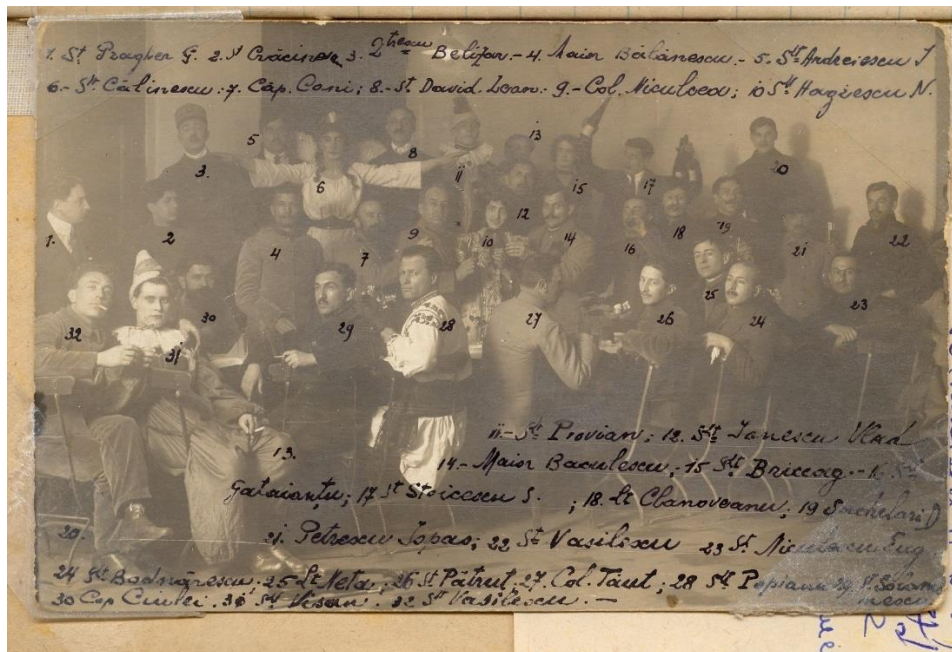 1. St Pragher F. 2. St Crăciner 3. Dtrescu Belizar.- 4. Maior Bălănescu.- 5. Slt Andreiescu I
6.- Slt Călinescu.- 7. Cap. Cani; 8.- St. David Ioan.- 9.- Col. Niculcea; 10 Slt Hagiescu N.
5
8
13
3.
6
11
15
17
20
12
1.
2
4
7
9
10
14
16
18
19
21
22
32
30
31
29
28
27
25
26
24
23
11- Slt Provian; 12. Slt Ionescu Vlad
13. 14.- Maior Baculescu.- 15 Slt Briceag.- 16 Slt
Gataianțu; 17 St Stoicescu S. ; 18. Lt Cbanoveanu; 19 Sachelari D
20. 21. Petrescu Topas; 22 St Vasilescu 23 St. Niculacu Eug
24 Slt Bodnărescu.- 25 Lt Neta; 26 St Pătrut.- 27. Col. Tăut; 28 Slt Popianu 29 St Solomonescu
30 Cap Ciulei. 31 Slt Vișan. 32 St Vasilescu.-